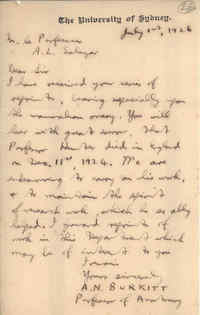 The University of Sydney.
July 1st, 1926
M. le Professeur
A. L. Salazar
Dear Sir
I have received your series of
reprints, covering especially you
the mammalian ovary. You will
hear with great sorrow, that
Professor Hunter died in England
on Dec. 11th, 1924. We are
endeavouring to carry on his work,
& to maintain the spirit
of research work, which he so ably
helped. I forward reprints of
work in this Department which
may be of interest to you
I remain
Yours sincerely
A. N. BURKITT
Professor of Anatomy